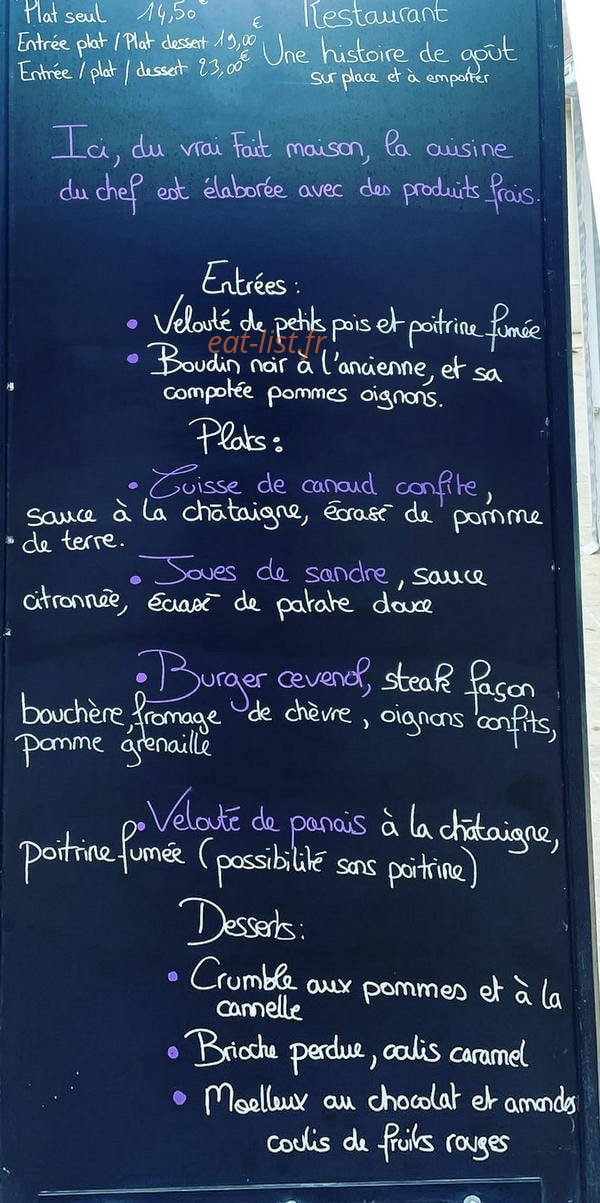 Plat seul 14,50€
Restaurant
Entrée plat / Plat dessert 19,00€
Une histoire de goût
Entrée / plat / dessert 23,00€
sur place et à emporter
Ici, du vrai Fait maison, la cuisine
du chef est élaborée avec des produits frais.
Entrées :
• Velouté de petits pois et poitrine fumée
eat-list.fr
• Boudin noir à l'ancienne, et sa
compotée pommes oignons.
Plats :
• Cuisse de canard confite,
sauce à la chataigne, écrasé de pomme
de terre.
• Joues de sandre, sauce
citronnée, écrasé de patate douce
• Burger cevenol, steak façon
bouchère, fromage de chèvre, oignons confits,
pomme grenaille
• Velouté de panais à la chataigne,
poitrine fumée (possibilité sans poitrine)
Desserts :
• Crumble aux pommes et à la
cannelle
• Brioche perdue, coulis caramel
• Moelleux au chocolat et amandes
coulis de fruits rouges